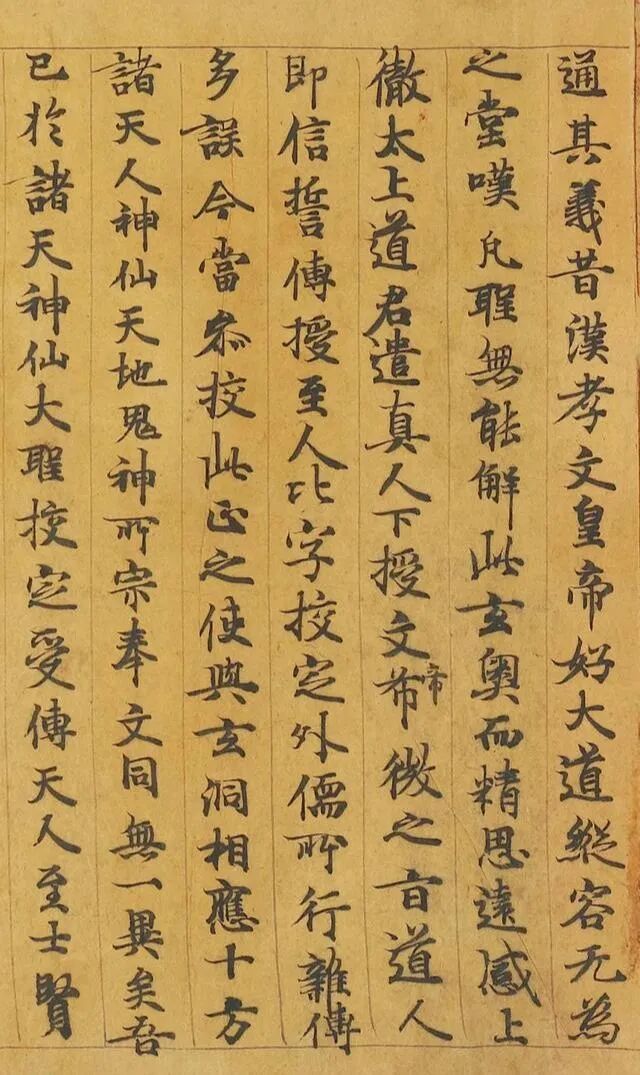 通其義昔漢孝文皇帝好大道縱容无為
之堂嘆凡聖無能解此玄奧而精思遠感上
徹太上道君遣真人下授文希帝微之旨道人
即信誓傳授至人比字挍定外儒所行雜傳
多誤今當参挍此正之使與玄洞相應十方
諸天人神仙天地鬼神所宗奉文同無一異矣吾
已於諸天神仙大聖挍定受傳天人至士賢